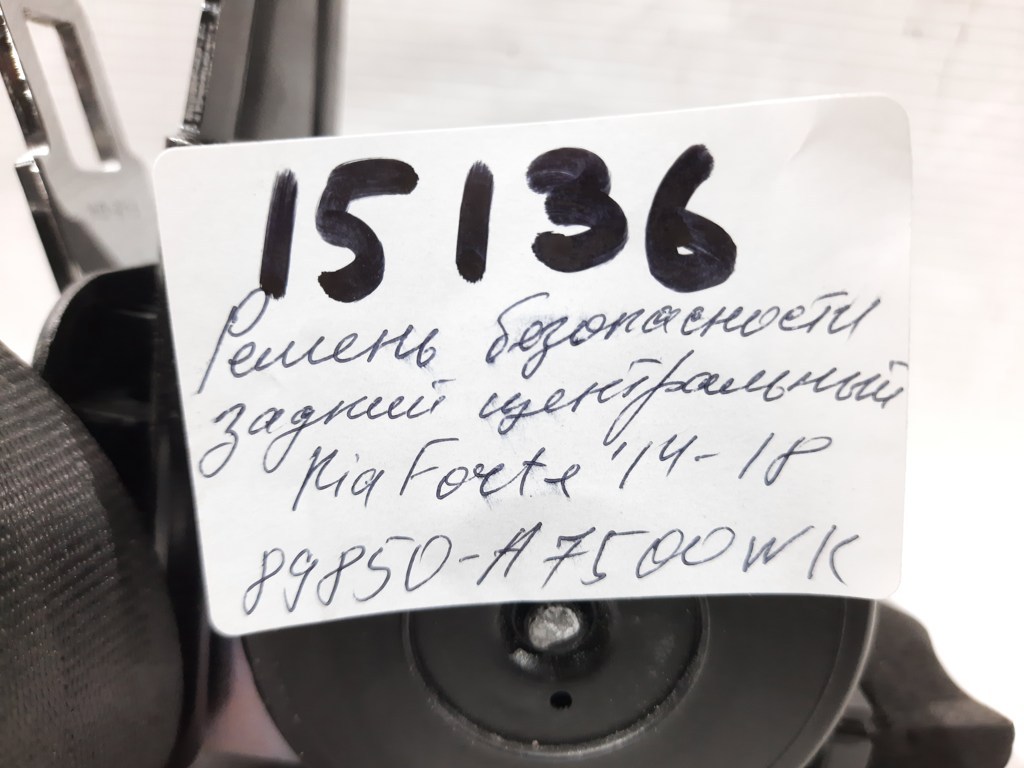 15136
Ремень безопасности
задний центральный
Kia Forte '14-18
89850-A7500WK